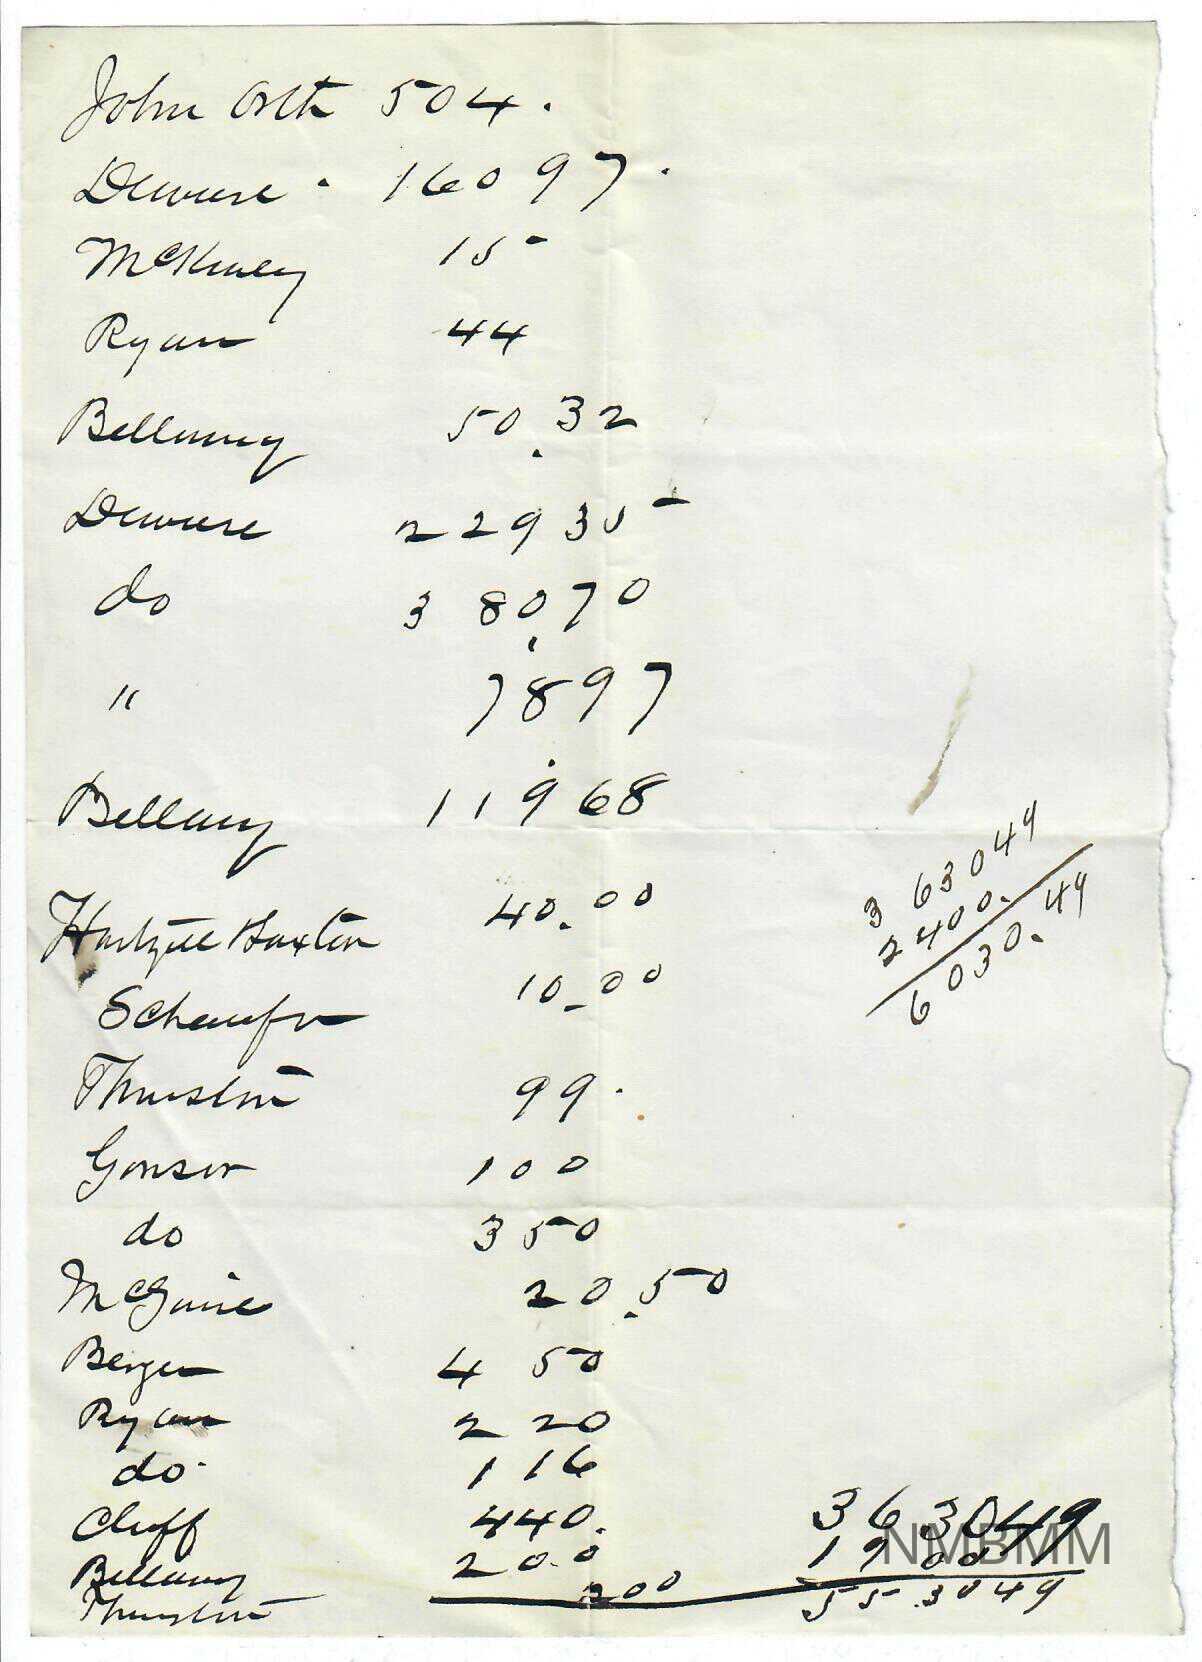 John Orth 504.
Deweese . 16097.
McKinley 15
Ryan 44
Bellamy 50.32
Deweese 22935
do 380.70
" 7897
Bellamy 11968
Hartzell Buxton 40.00
10.00
Thurston 99.
Gonsor 100
do 350
McGuire 20.50
Berger 4 50
Ryan 2 20
do. 1 16
Cluff 440.
Bellamy 200
Thurston 200
3 63044
2400.
6 030.44
3 63049
19 00
55 3049
NMBMM